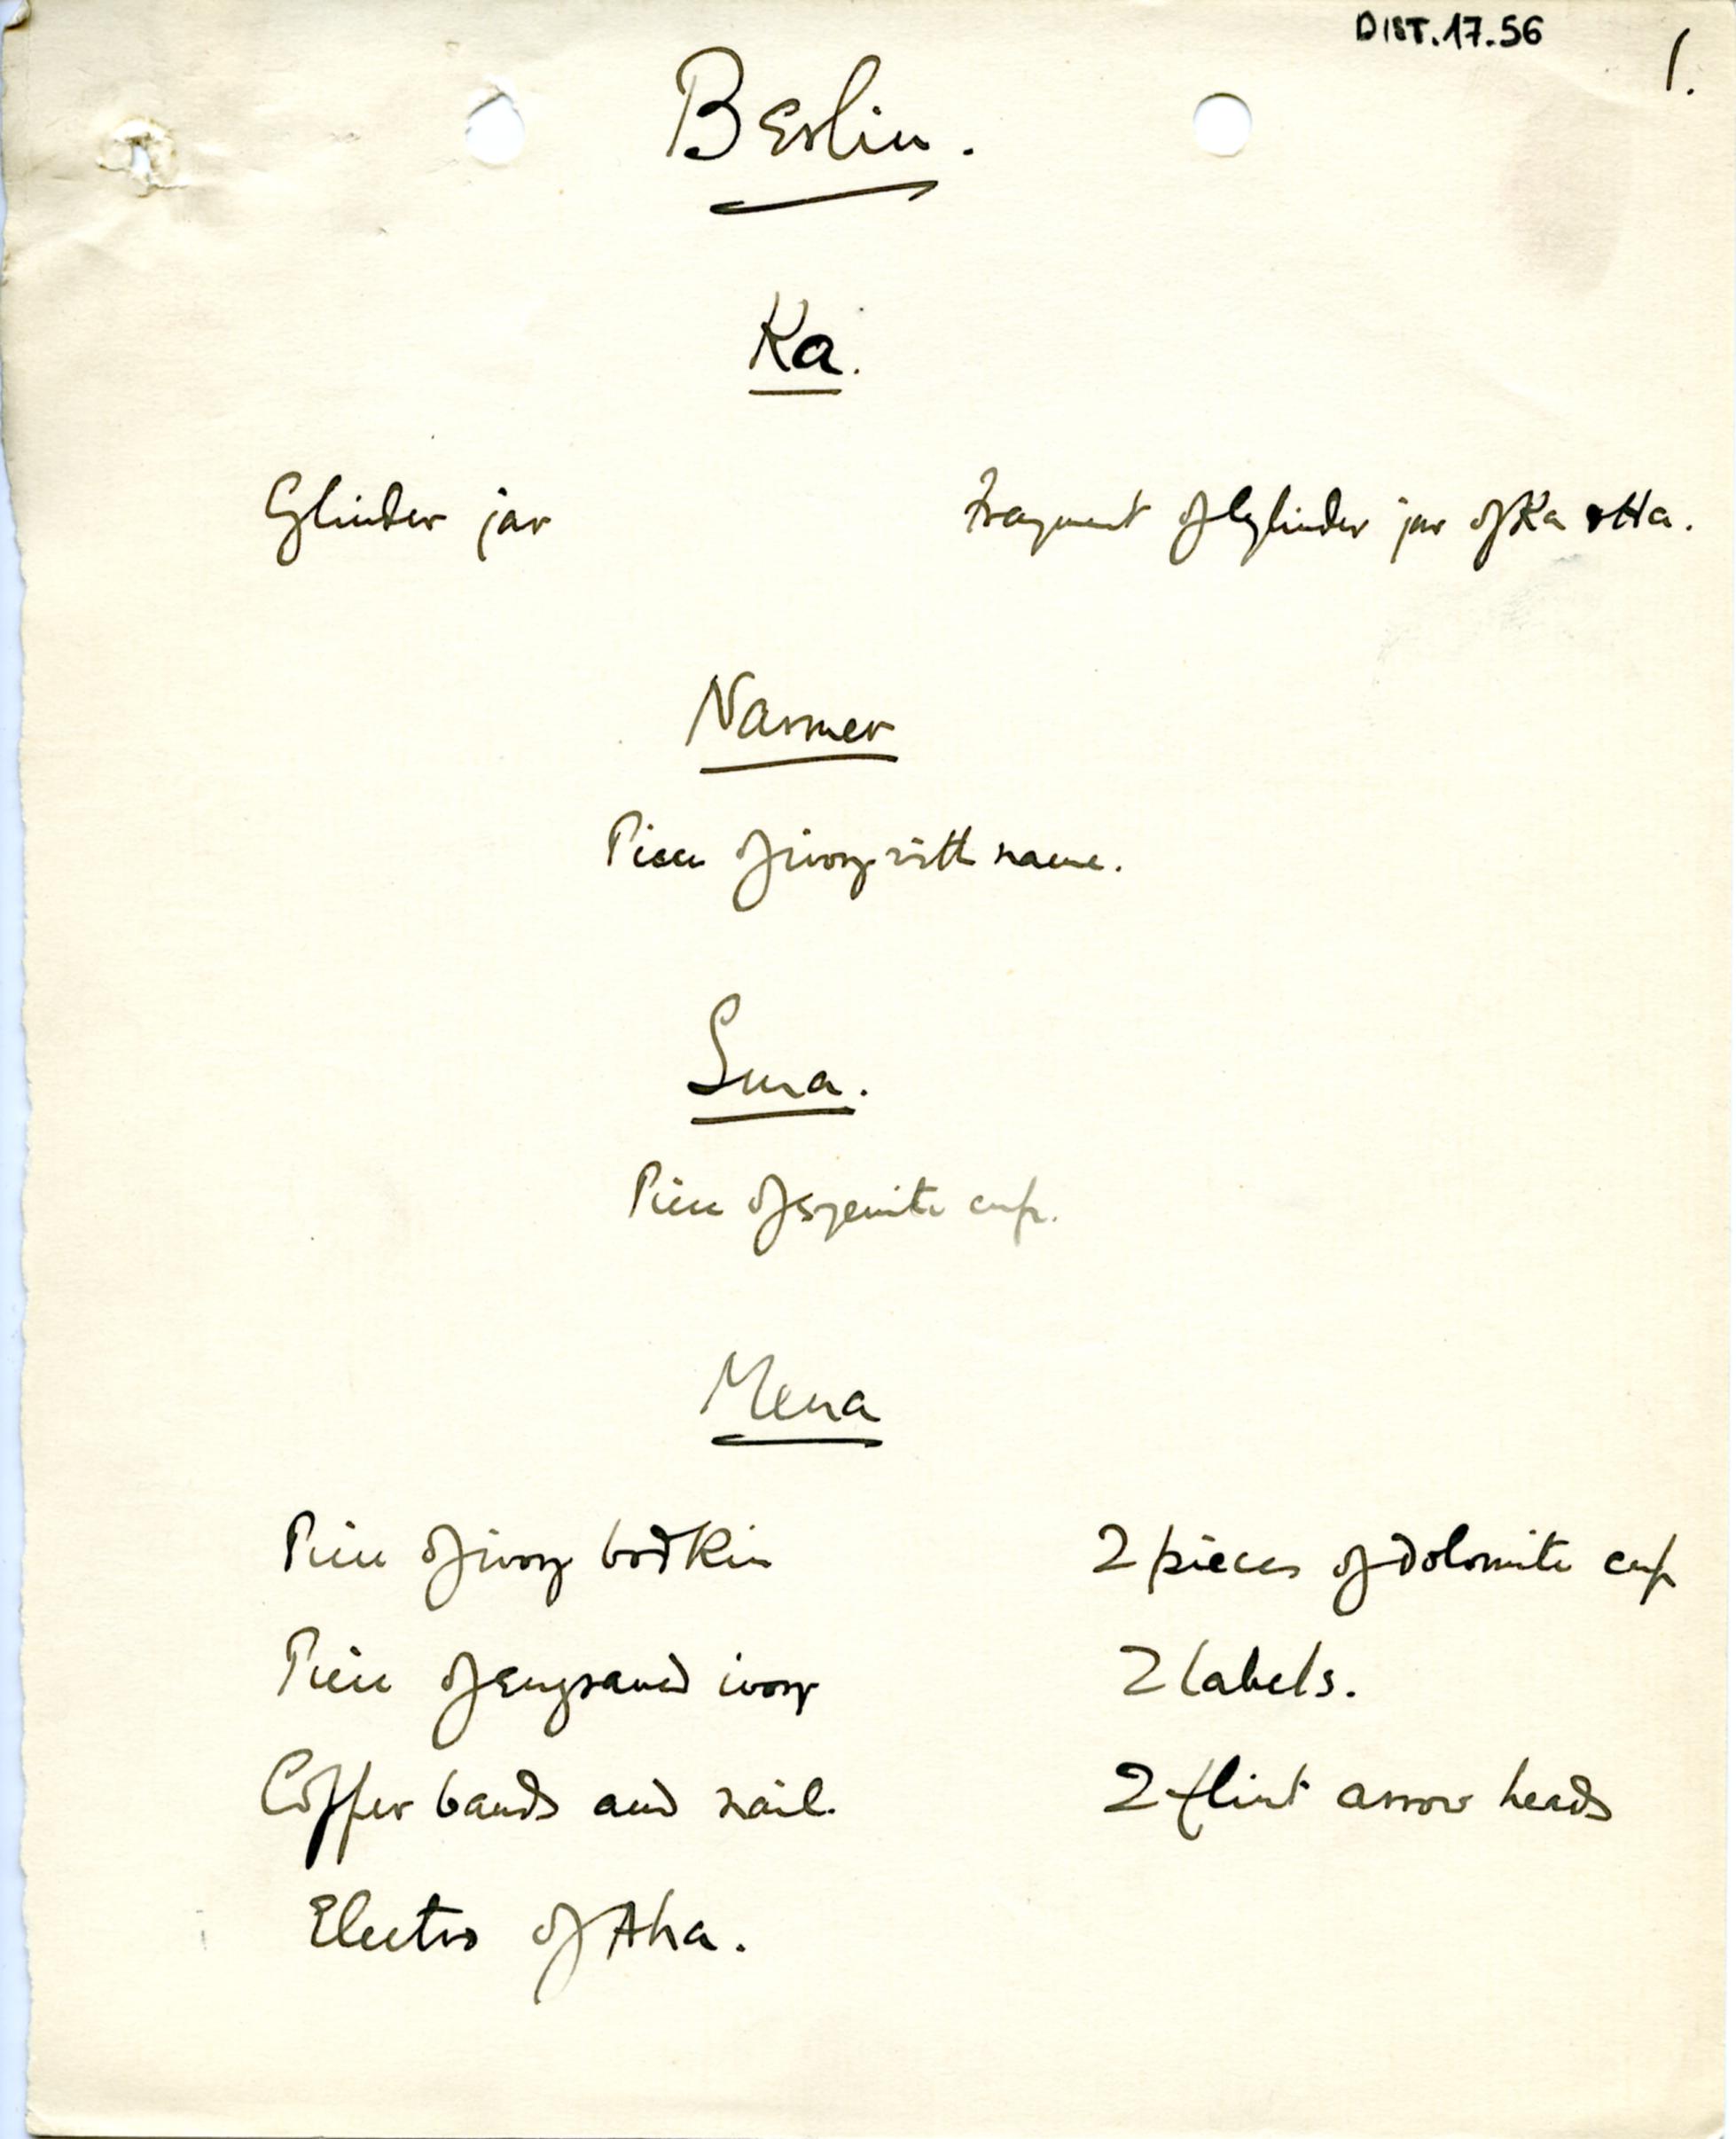 DIST.17.56
1.
Berlin.
Ka.
Cylinder jar
Fragment of Cylinder jar of Ka & Ha.
Narmer
Piece of ivory with name.
Sma.
Piece of syenite cup.
Mena
Piece of ivory bodkin
2 pieces of dolomite cup
Piece of engraved ivory
2 labels.
Copper bands and nail.
2 flint arrow heads
Electro of Aha.